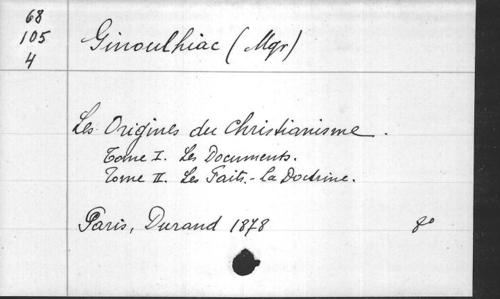 68
105
4
Ginoulhiac (Mgr)
Les Origines du Christianisme.
Tome I. Les Documents.
Tome II. Les Faits.- La Doctrine.
Paris, Durand 1878 8°